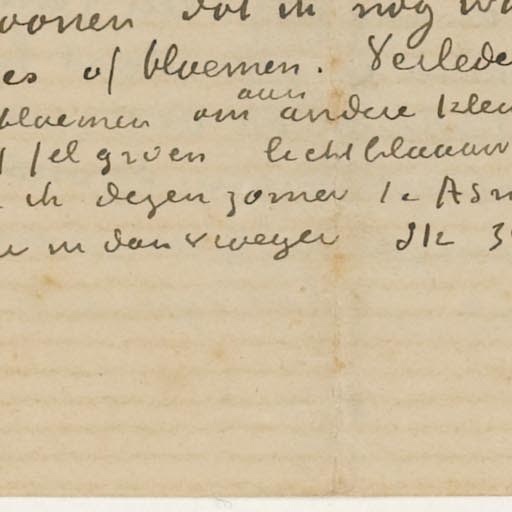 oonen dat ik nog w
es of bloemen. Verlede
aan
bloemen om andere kleu
fel groen lichtblaauw
ik dezen zomer te Asn
in dan vroeger Ik